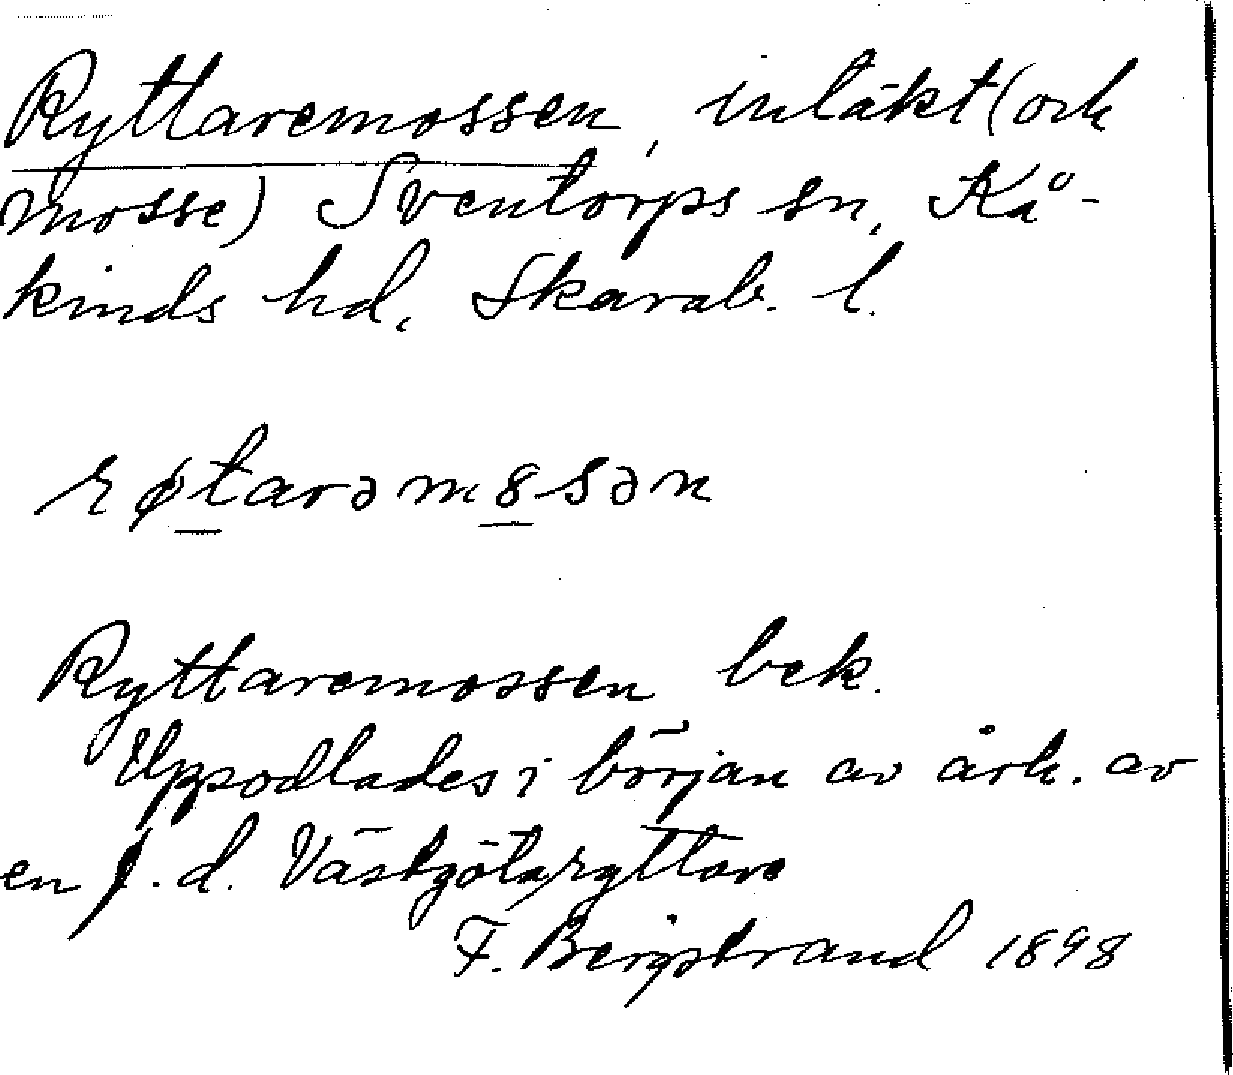 Ryttaremossen, intäkt (och
mosse) Sventorps sn, Kå-
kinds hd, Skarab. l.
røtarəm8sən
Ryttaremossen bek.
Uppodlades i början av årh. av
en f.d. Västgötaryttare
F. Bergstrand 1898